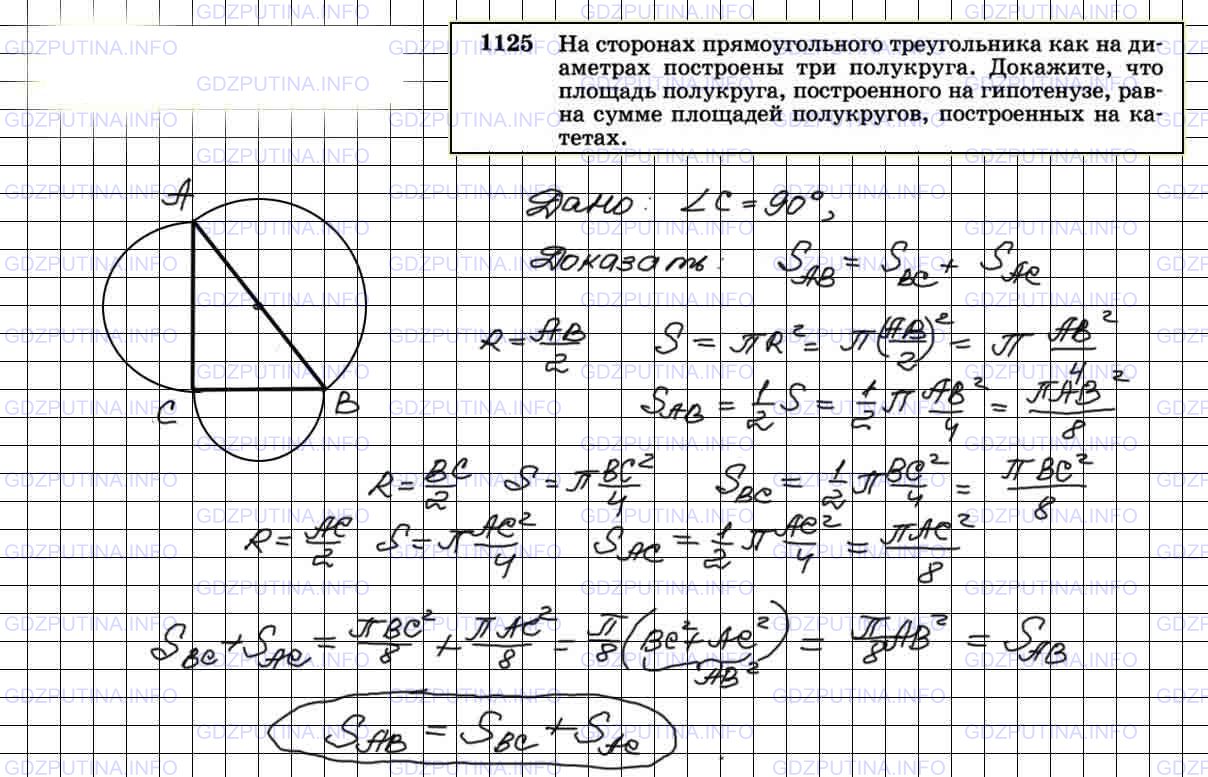 1125 На сторонах прямоугольного треугольника как на ди-
аметрах построены три полукруга. Докажите, что
площадь полукруга, построенного на гипотенузе, рав-
на сумме площадей полукругов, построенных на ка-
тетах.
A
C
B
Дано: ∠C = 90°,
Доказать: S_AB = S_BC + S_AC
R = AB/2 S = πR² = π(AB/2)² = π AB²/4
S_AB = 1/2 S = 1/2 π AB²/4 = πAB²/8
R = BC/2 S = π BC²/4 S_BC = 1/2 π BC²/4 = πBC²/8
R = AC/2 S = π AC²/4 S_AC = 1/2 π AC²/4 = πAC²/8
S_BC + S_AC = πBC²/8 + πAC²/8 = π/8 (BC² + AC²) = π/8 AB² = S_AB
AB²
S_AB = S_BC + S_AC
GDZPUTINA.INFO